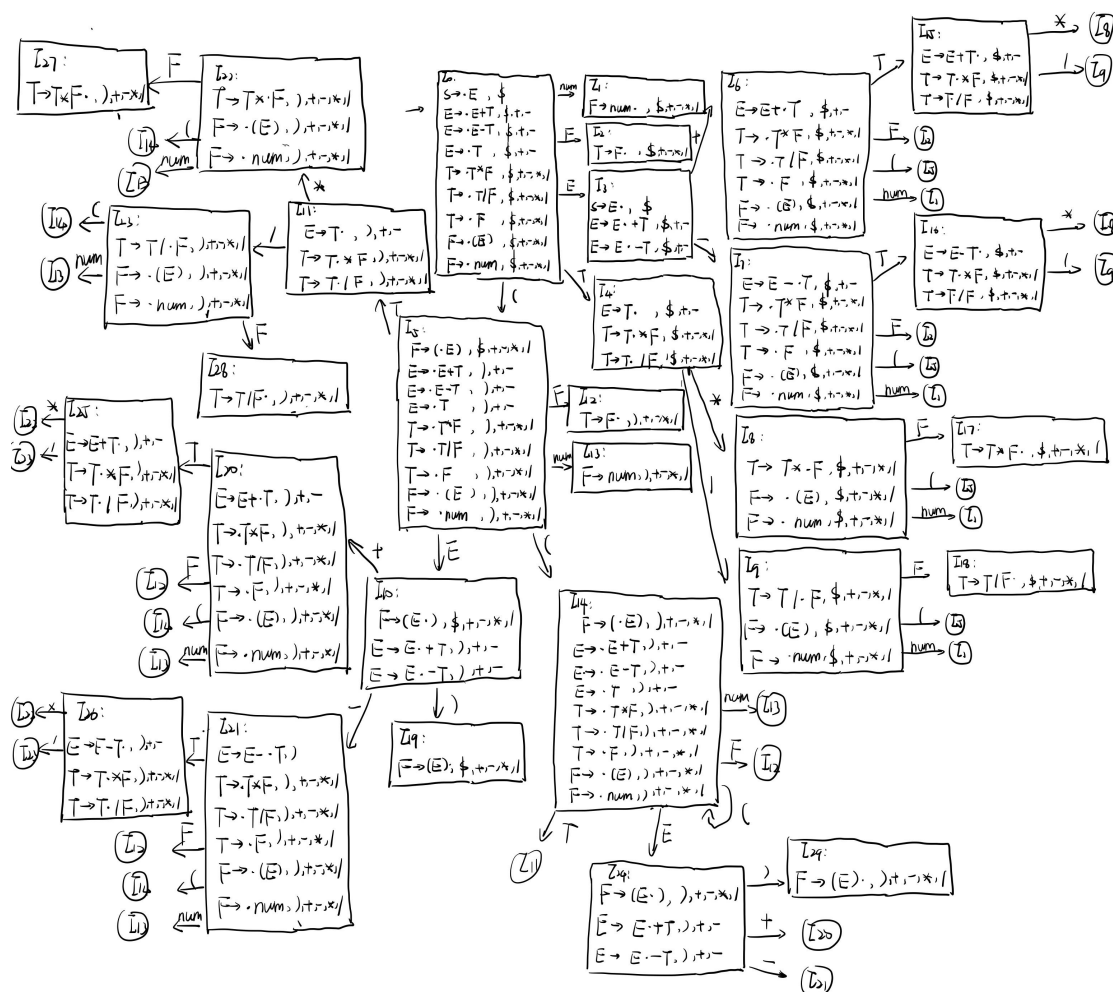 I27:
T→T*F·, ),+,-,*,/
F
I22:
T→T*·F, ),+,-,*,/
F→·(E), ),+,-,*,/
F→·num, ),+,-,*,/
(
I14
num
I13
*
I23:
T→T/·F, ),+,-,*,/
F→·(E), ),+,-,*,/
F→·num, ),+,-,*,/
(
I14
num
I13
/
I11:
E→T·, ),+,-
T→T·*F, ),+,-,*,/
T→T·/F, ),+,-,*,/
F
I28:
T→T/F·, ),+,-,*,/
T
I0:
S→·E, $
E→·E+T, $,+,-
E→·E-T, $,+,-
E→·T, $,+,-
T→·T*F, $,+,-,*,/
T→·T/F, $,+,-,*,/
T→·F, $,+,-,*,/
F→·(E), $,+,-,*,/
F→·num, $,+,-,*,/
num
I1:
F→num·, $,+,-,*,/
F
I2:
T→F·, $,+,-,*,/
E
I3:
S→E·, $
E→E·+T, $,+,-
E→E·-T, $,+,-
+
-
T
I4:
E→T·, $,+,-
T→T·*F, $,+,-,*,/
T→T·/F, $,+,-,*,/
*
/
(
I5:
F→(·E), $,+,-,*,/
E→·E+T, ),+,-
E→·E-T, ),+,-
E→·T, ),+,-
T→·T*F, ),+,-,*,/
T→·T/F, ),+,-,*,/
T→·F, ),+,-,*,/
F→·(E), ),+,-,*,/
F→·num, ),+,-,*,/
F
I12:
T→F·, ),+,-,*,/
num
I13:
F→num, ),+,-,*,/
E
(
I6:
E→E+·T, $,+,-
T→·T*F, $,+,-,*,/
T→·T/F, $,+,-,*,/
T→·F, $,+,-,*,/
F→·(E), $,+,-,*,/
F→·num, $,+,-,*,/
T
F
I2
(
I5
num
I1
I15:
E→E+T·, $,+,-
T→T·*F, $,+,-,*,/
T→T·/F, $,+,-,*,/
*
I8
/
I9
I7:
E→E-·T, $,+,-
T→·T*F, $,+,-,*,/
T→·T/F, $,+,-,*,/
T→·F, $,+,-,*,/
F→·(E), $,+,-,*,/
F→·num, $,+,-,*,/
T
F
I2
(
I5
num
I1
I16:
E→E-T·, $,+,-
T→T·*F, $,+,-,*,/
T→T·/F, $,+,-,*,/
*
I8
/
I9
I8:
T→T*·F, $,+,-,*,/
F→·(E), $,+,-,*,/
F→·num, $,+,-,*,/
F
I17:
T→T*F·, $,+,-,*,/
(
I5
num
I1
I9:
T→T/·F, $,+,-,*,/
F→·(E), $,+,-,*,/
F→·num, $,+,-,*,/
F
I18:
T→T/F·, $,+,-,*,/
(
I5
num
I1
I25:
E→E+T·, ),+,-
T→T·*F, ),+,-,*,/
T→T·/F, ),+,-,*,/
*
/
T
I20:
E→E+·T, ),+,-
T→·T*F, ),+,-,*,/
T→·T/F, ),+,-,*,/
T→·F, ),+,-,*,/
F→·(E), ),+,-,*,/
F→·num, ),+,-,*,/
F
I12
(
I14
num
I13
+
I10:
F→(E·), $,+,-,*,/
E→E·+T, ),+,-
E→E·-T, ),+,-
-
)
I19:
F→(E)·, $,+,-,*,/
I26:
E→E-T·, ),+,-
T→T·*F, ),+,-,*,/
T→T·/F, ),+,-,*,/
*
/
T
I21:
E→E-·T, )
T→·T*F, ),+,-,*,/
T→·T/F, ),+,-,*,/
T→·F, ),+,-,*,/
F→·(E), ),+,-,*,/
F→·num, ),+,-,*,/
F
I12
(
I14
num
I13
I14:
F→(·E), ),+,-,*,/
E→·E+T, ),+,-
E→·E-T, ),+,-
E→·T, ),+,-
T→·T*F, ),+,-,*,/
T→·T/F, ),+,-,*,/
T→·F, ),+,-,*,/
F→·(E), ),+,-,*,/
F→·num, ),+,-,*,/
num
I13
F
I12
(
T
I11
E
I24:
F→(E·), ),+,-,*,/
E→E·+T, ),+,-
E→E·-T, ),+,-
)
I29:
F→(E)·, ),+,-,*,/
+
I20
-
I21